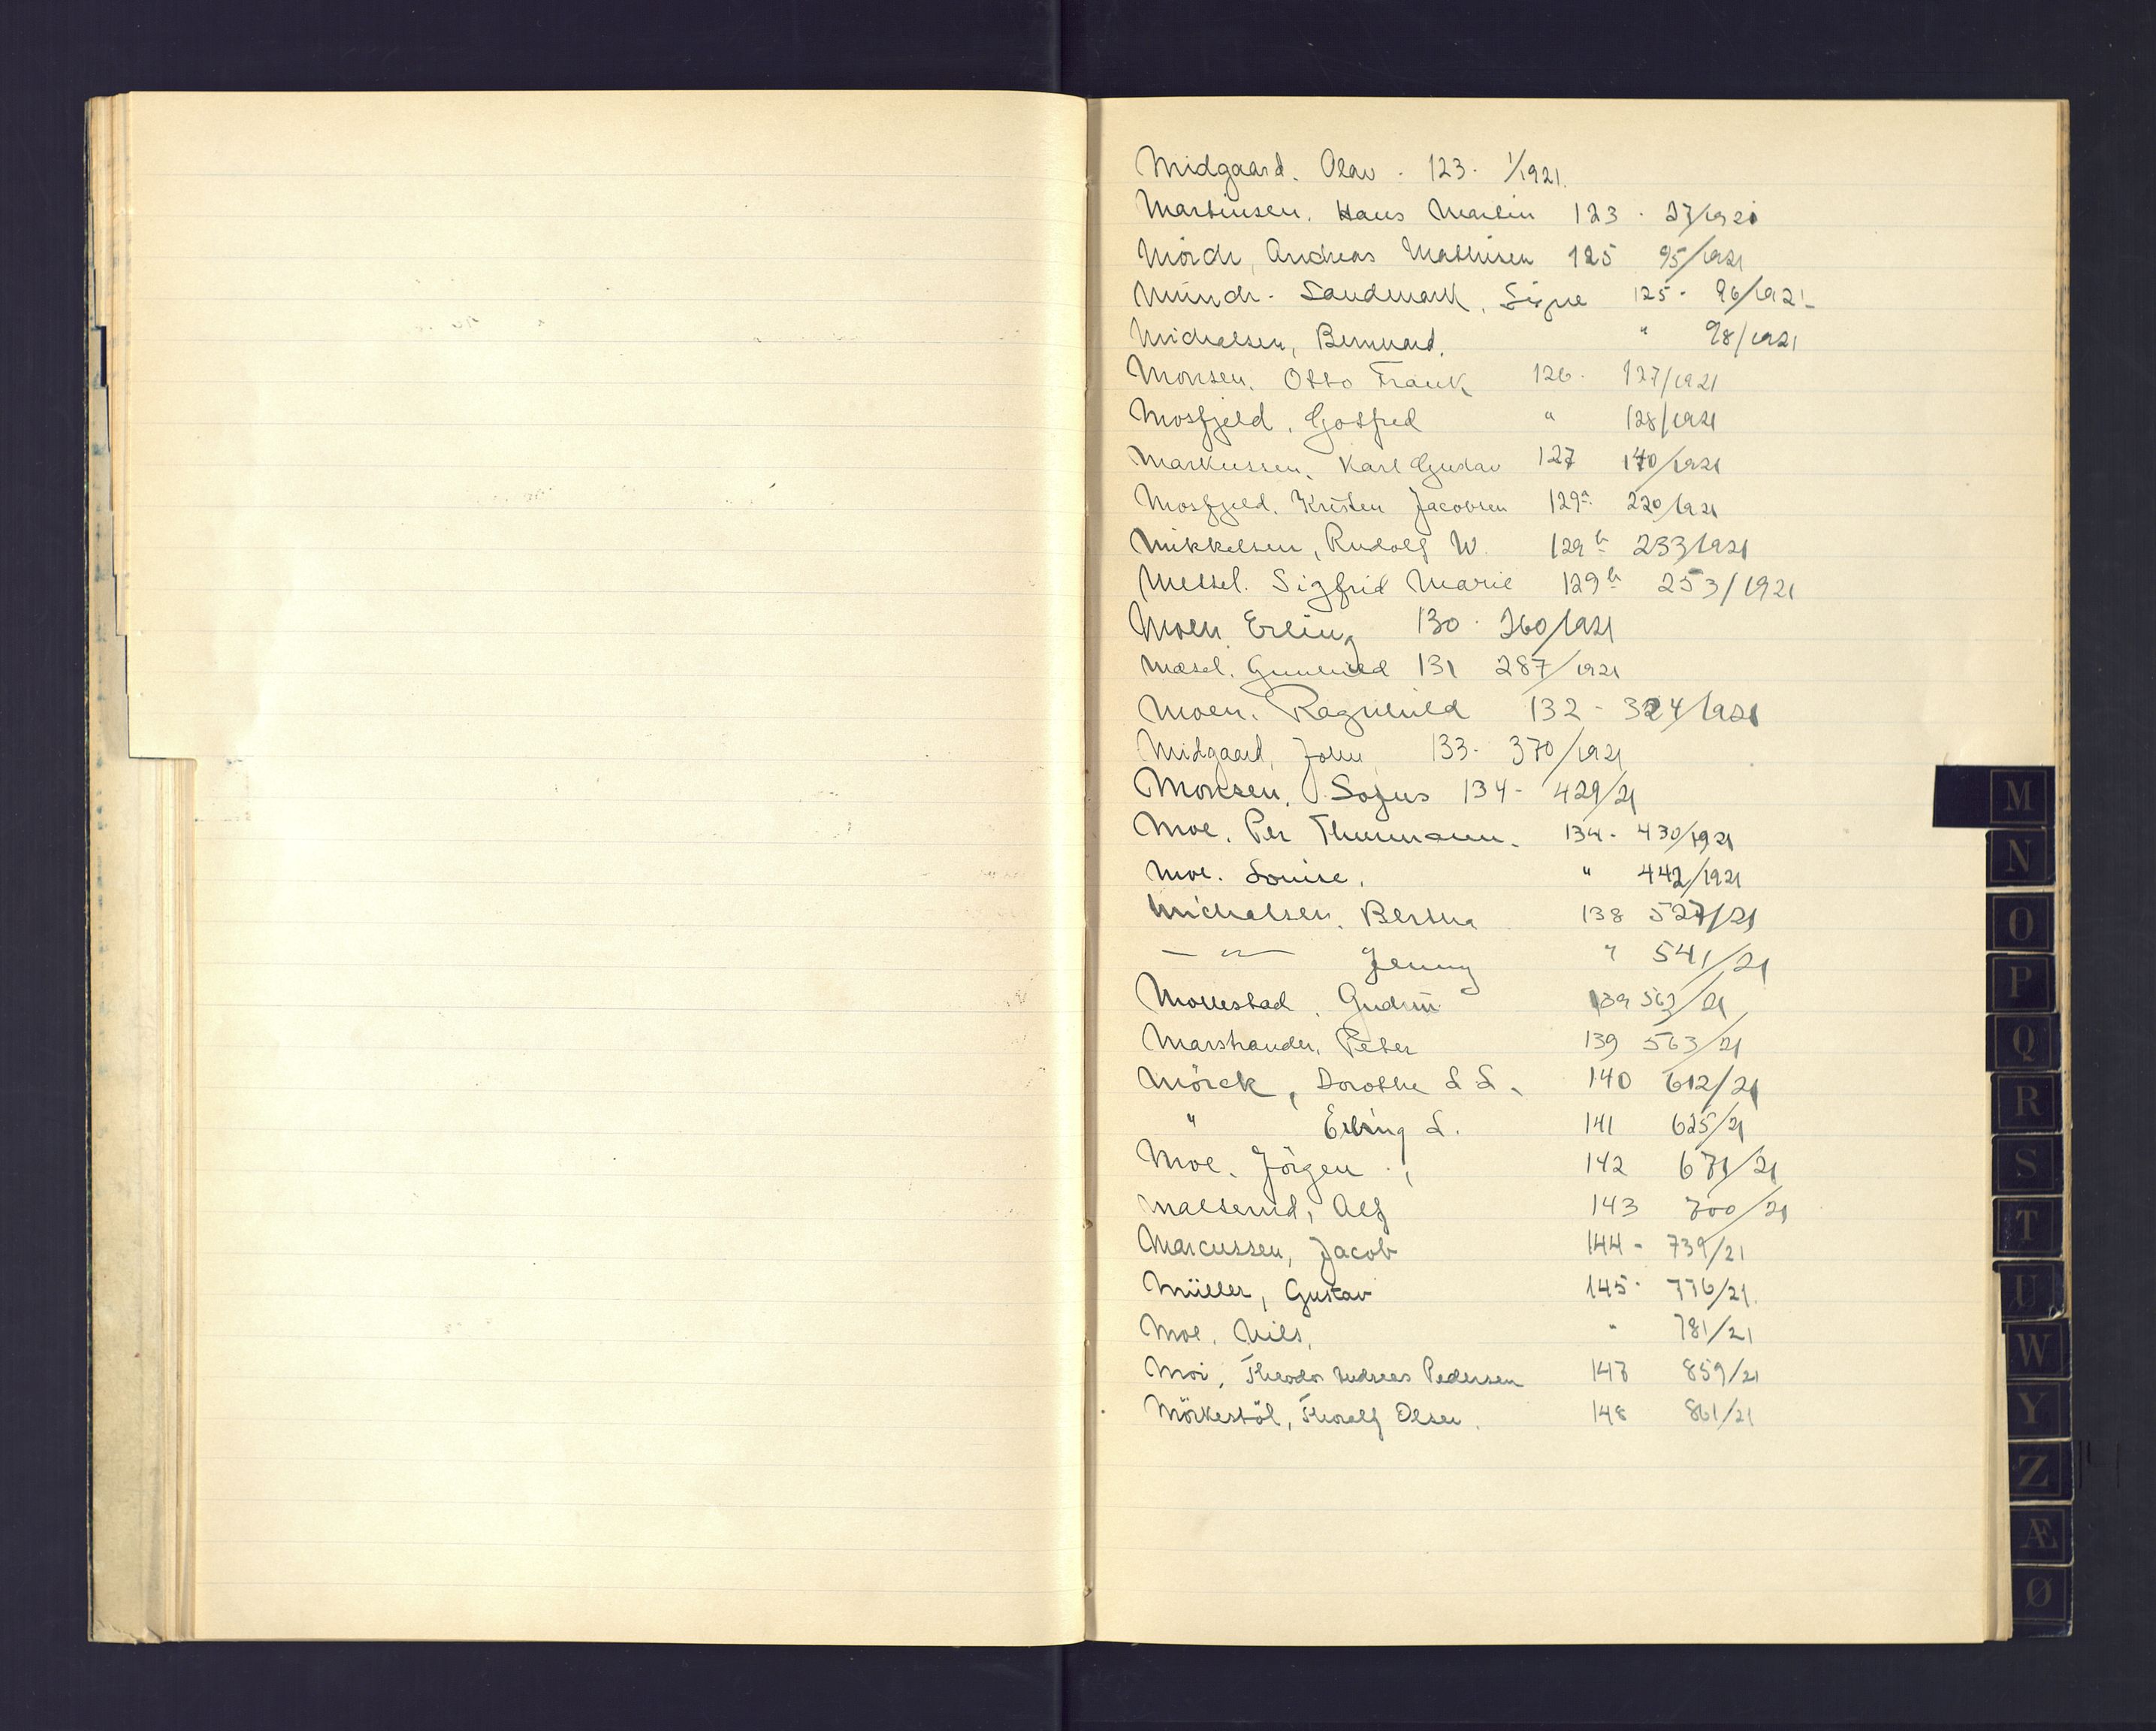 Midgaard. Olav. 123. 1/1921.
Martinsen. Hans Martin 123. 27/1921
Mörch, Andreas Mathisen 125 95/1921
Münch-Sandmark, Signe 125. 96/1921-
Michalsen, Bernhard. " 98/1921
Monsen. Otto Frank 126. 127/1921
Mosfjeld. Gotfred " 128/1921
Markussen, Karl Gustav 127 140/1921
Mosfjeld. Kristen Jacobsen 129a. 220/1921
Mikkelsen, Rudolf W. 129b 233/1921
Messel. Sigfrid Marie 129b 253/1921
Moen Erling 130. 260/1921
Mæsel. Gunhild 131 287/1921
Moen. Ragnhild 132 - 324/1921
Midgaard, John 133. 370/1921
Monsen. Sofus 134- 429/21
Moe. Per Thurmann. 134. 430/1921
Moe. Louise. " 442/1921
Michalsen. Bertha 138 527/21
— " — Jenny " 541/21
Mollestad. Gudrun 139 562/21
Marstrander, Peter 139 563/21
Mörck, Dorothe L L. 140 612/21
" Erling L. 141 625/21
Moe. Jörgen. 142 671/21
Malterud, Alf 143 700/21
Marcussen, Jacob 144- 739/21
Müller, Gustav 145. 776/21.
Moe. Nils, " 781/21
Moi, Theodor Andreas Pedersen 147 859/21
Mörkestöl, Thoralf Olsen. 148 861/21
M
N
O
P
Q
R
S
T
U
W
Y
Z
Æ
Ø